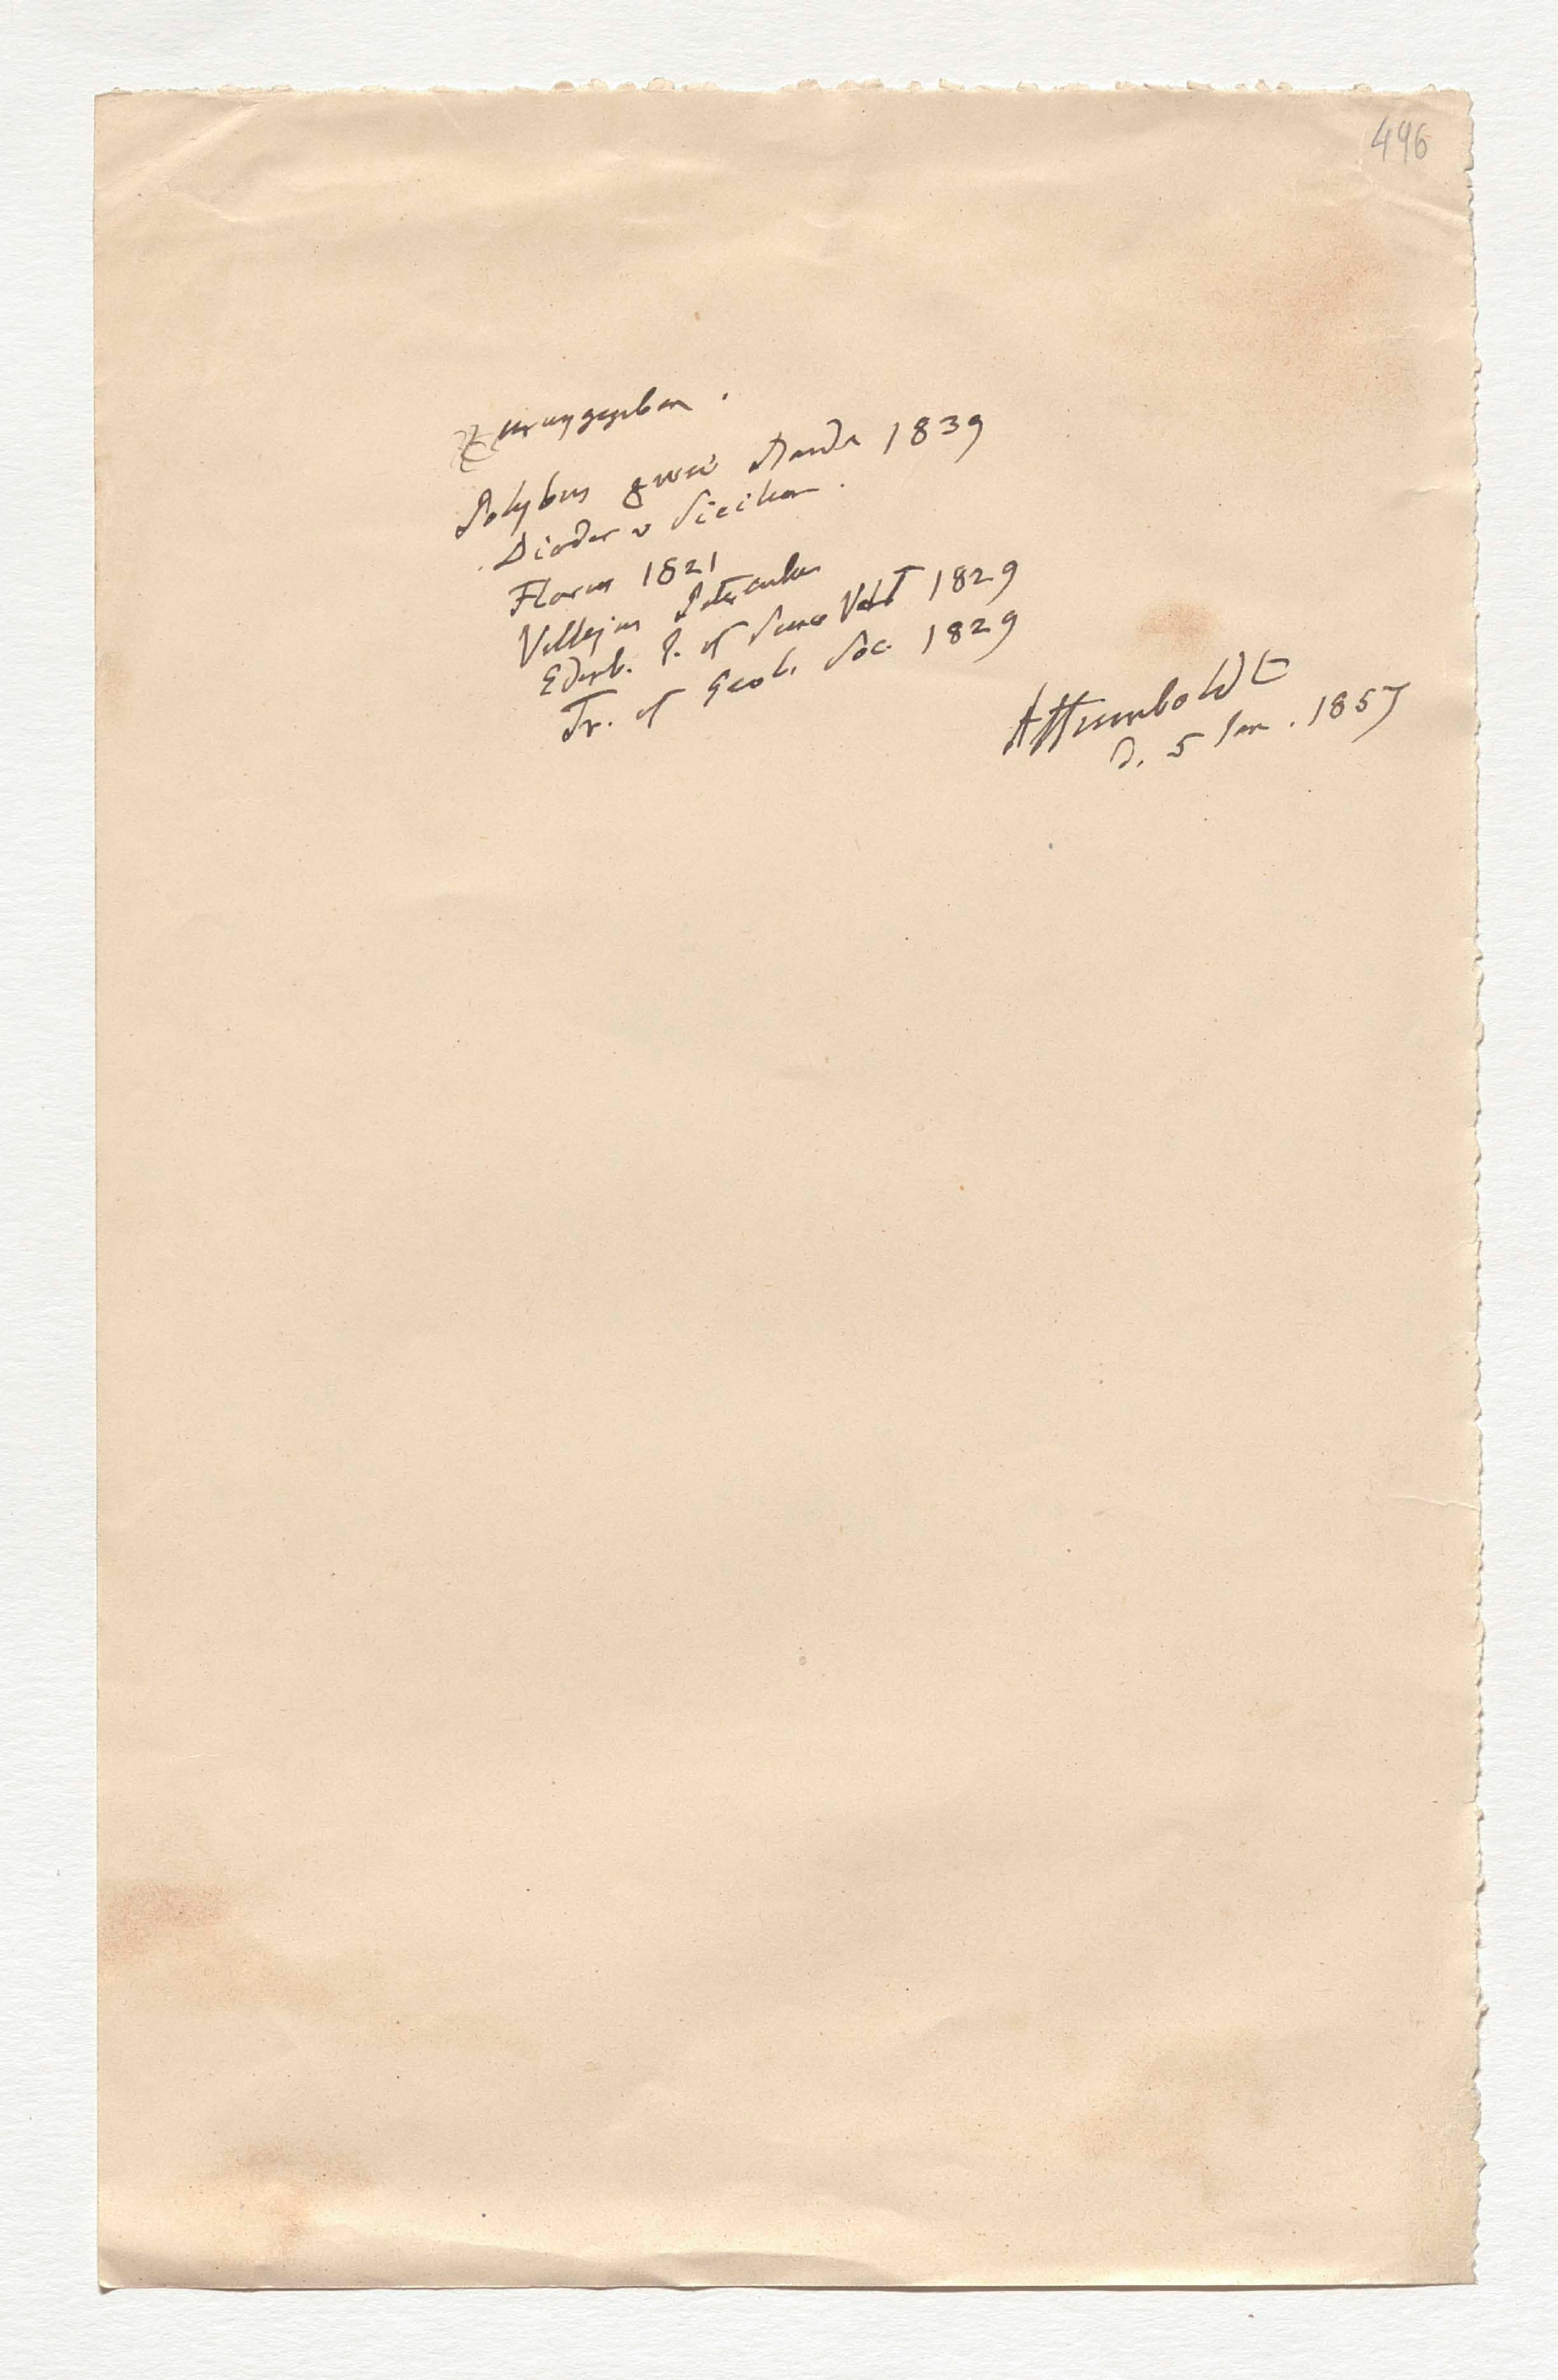 496
Zurükgegeben.
Polybius zwei Bände 1839
Diodor v Sicilien.
Florus 1821
Vellejus Paterculus
Edinb. J. of Science Vol 1 1829
Tr. of Geol. Soc. 1829
AHumboldt
d. 5 Jan. 1857